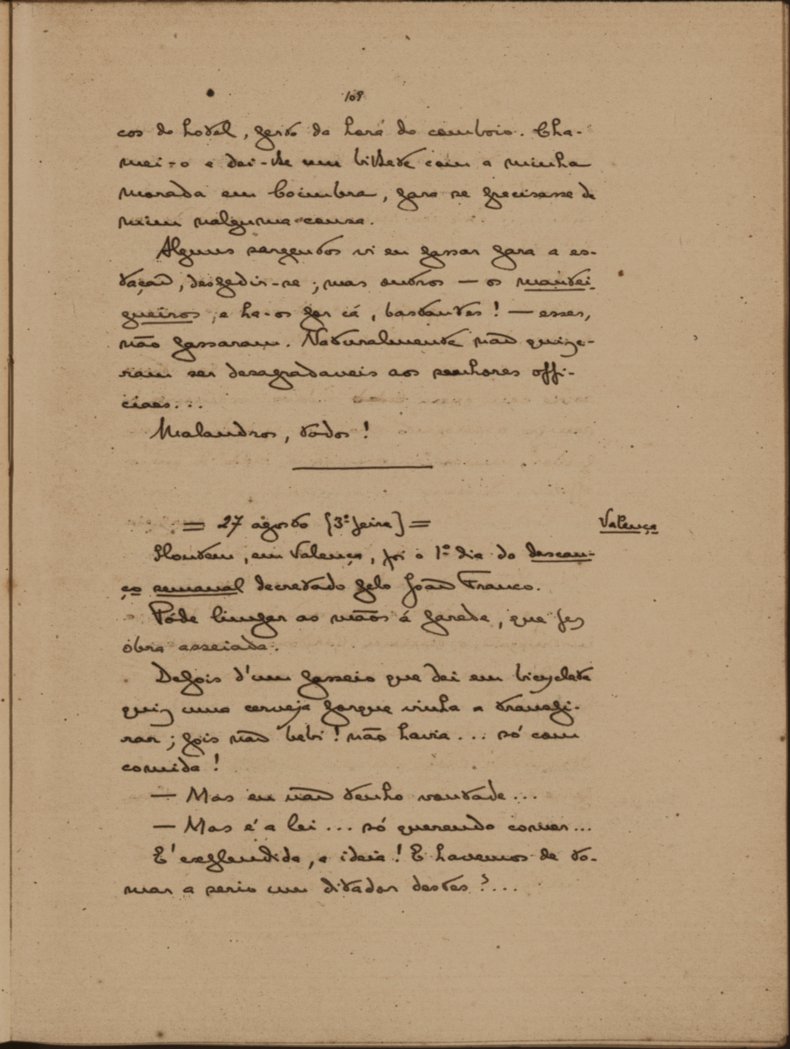 109
cos do hotel, perto da hora do comboio. Cha-
mei-o e dei-lhe um bilhete com a minha
morada em Coimbra, para se precisasse de
mim nalguma cousa.
Alguns sargentos vi eu passar para a es-
tação, despedir-se; mas outros — os mantei-
gueiros, e ha-os por cá, bastantes! — esses,
não passaram. Naturalmente não quize-
ram ser desagradaveis aos senhores offi-
ciaes...
Malandros, todos!
= 27 agosto [3ª feira] =
Valença
Hontem, em Valença, foi o 1º dia do descan-
ço semanal decretado pelo João Franco.
Póde limpar as mãos á parede, que fez
obra asseiada.
Depois d'um passeio que dei em bicyclete
quiz uma cerveja porque vinha a transpi-
rar; pois não bebi! não havia... só com
comida!
— Mas eu não tenho vontade...
— Mas é a lei... só querendo comer...
E' explendida, a ideia! E havemos de to-
mar a serio um ditador destes?...